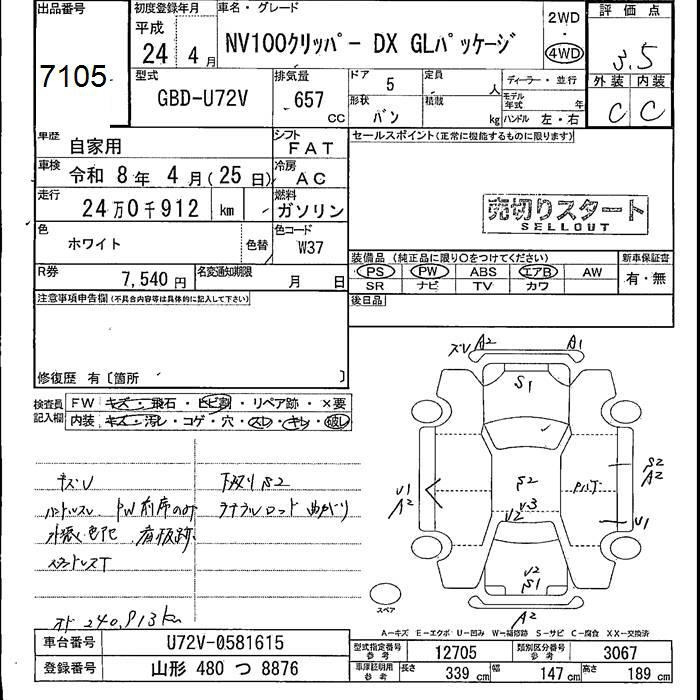 出品番号
7105
初度登録年月
平成
24 4月
車名・グレード
NV100クリッパー DX GLパッケージ
2WD
・
4WD
評価点
3.5
外装 内装
C C
型式
GBD-U72V
排気量
657
CC
ドア
5
形状
バン
定員
人
積載
kg
ディーラー・並行
モデル年式 年
ハンドル 左・右
車歴
自家用
シフト
FAT
車検
令和 8年 4月(25日)
冷房
AC
走行
24万0千912 km
燃料
ガソリン
色
ホワイト
色替
色コード
W37
R券
7,540円
名変通知期限
月 日
セールスポイント(正常に機能するものに限ります)
売切りスタート
SELLOUT
装備品(純正品に限り○をつけてください)
PS PW ABS エアB AW
SR ナビ TV カワ
新車保証書
有・無
後日品
注意事項申告欄(不具合内容等は具体的に記入して下さい)
修復歴 有〔箇所 〕
検査員記入欄
FW キズ・飛石・ヒビ割・リペア跡・×要
内装 キズ・汚レ・コゲ・穴・スレ・キレ・破レ
キズV
下廻りS2
ハンドルスレ PW前席のみ
ラテラルロッド曲がり
外張色花 看板跡
オド 240,913km
ズV A2 A1
S1
S2
V3
V2
V2
S1
A2
U1
A2
S2
A2
U1
スペア
A-キズ E-エクボ U-凹み W-補修跡 S-サビ C-腐食 XX-交換済
車台番号
U72V-0581615
登録番号
山形 480 つ 8876
型式指定番号
参考
12705
類別区分番号
参考
3067
車庫証明用
参考
長さ 339cm 幅 147cm 高さ 189cm